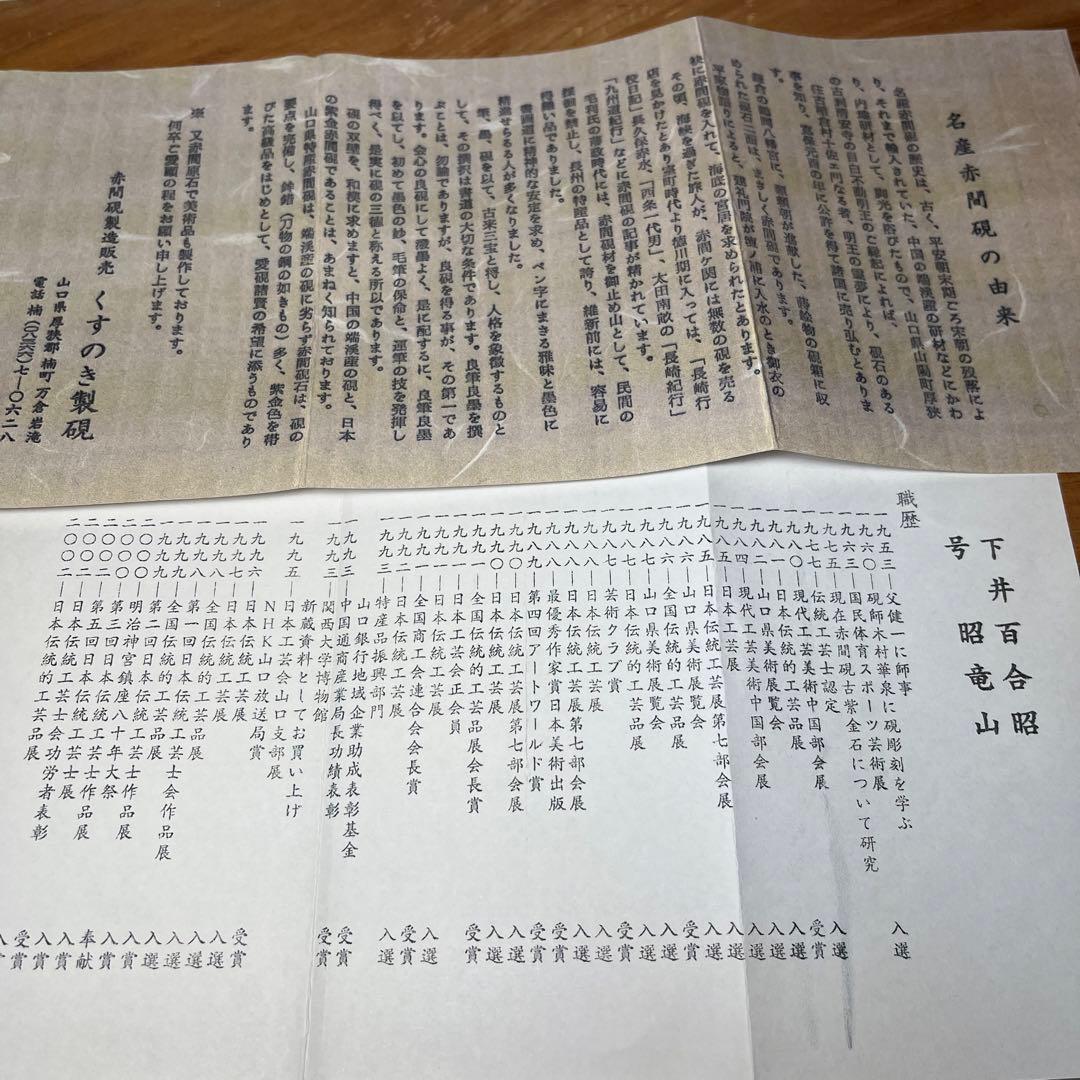 名産赤間硯の由来
名産赤間硯の歴史は、古く、平安朝末期ごろ宋朝の没落によ
り、それまで輸入されていた、中国の端溪産の研材などにかわ
り、内地研材として、脚光を浴びたもので、山口県山陽町厚狭
の古刹岩安寺の目白不動明王のご縁起によれば、硯石のある
住古剛吉村十佐ェ門なる者、明王の霊夢により、
事を知り、嘉保元年の年に公許を得て諸国に売り弘むとありま
す。
鎌倉の鶴岡八幡宮に、源頼朝が進献した、蒔絵物の硯箱に収
められた硯石二面は、まさしく赤間硯であります。
平家物語りによると、建礼門院が壇ノ浦に入水のとき御衣の
袂に赤間硯を入れて、海底の宮居を求められたとあります。
その頃、海峡を過ぎた旅人が、赤間ケ関には無数の硯を売る
店を見かけたとあり室町時代より徳川期に入っては、「長崎行
役日記」長久保赤水、「西条一代男」、太田南畝の「長崎紀行」
「九州道紀行」などに赤間硯の記事が精かれています。
毛利氏の藩政時代には、赤間硯材を御止め山として、民間の
採制を禁止し、長州の特産品として誇り、維新前には、容易に
得難い品でありました。
書画道に精神的な安定を求め、ペン字にまさる雅味と墨色に
精進せらるる人が多くなりました。
筆、墨、硯を以て、古来三宝と得し、人格を象徴するものと
して、その撰択は書道の大切な条件であります。良筆良墨を撰
ぶことは、勿論でありますが、良硯を得る事が、その第一であ
ります。会心の良硯にして潑墨よく、是に配するに、良筆良墨
を以てし、初めて墨色の妙、毛筆の保命と、運筆の技を発揮し
得べく、是実に硯の三徳と称える所以であります。
硯の双璧を、和漢に求めますと、中国の端溪産の硯と、日本
の紫金赤間硯であることは、あまねく知られております。
山口県特産赤間硯は、端溪産の硯に劣らず赤間硯石は、硯の
要点を完備し、鉾鋩(刀物の鋼の如きもの)多く、紫金色を帯
びた高級品をはじめとして、愛硯諸賢の希望に添うものであり
ます。
※ 又赤間原石で美術品も製作しております。
何卒ご愛顧の程をお願い申し上げます。
赤間硯製造販売 くすのき製硯
山口県厚狭郡楠町万倉岩滝
電話 楠(〇八三六六)七-〇六二八
下井百合昭
号 昭竜山
職歴
一九五三―父健一に師事
一九六〇―硯師木村華泉に硯彫刻を学ぶ
一九六三―国民体育スポーツ芸術展 入選
一九七五―現在赤間硯古紫金石について研究
一九七七―伝統工芸士認定
一九八〇―現代工芸美術中国部会展 入選
一九八一―日本伝統的工芸品展 受賞
一九八二―山口県美術展覧会 入選
一九八四―現代工芸美術中国部会展 入選
一九八五―日本工芸展 入選
一九八五―日本伝統工芸展第七部会展 入選
一九八六―山口県美術展覧会 受賞
一九八六―全国伝統的工芸品展 入選
一九八七―山口県美術展覧会 入選
一九八七―日本伝統的工芸品展 受賞
一九八七―芸術クラブ賞
一九八八―日本伝統工芸展 入選
一九八八―日本伝統工芸展第七部会展 入選
一九八八―最優秀作家賞日本美術出版 受賞
一九八九―第四回アートワールド賞 受賞
一九九〇―日本伝統工芸展第七部会展 入選
一九九〇―日本伝統工芸展 入選
一九九一―全国伝統的工芸品展会長賞 受賞
一九九一―日本工芸会正会員
一九九一―日本伝統工芸展 入選
一九九一―全国商工会連合会会長賞 受賞
一九九二―日本伝統工芸展 入選
一九九三―山口銀行地域企業助成表彰基金
特産品振興部門 受賞
一九九三―中国通商産業局長功績表彰 受賞
一九九三―関西大学博物館
新蔵資料としてお買い上げ
一九九五―日本工芸会山口支部展
NHK山口放送局賞 受賞
一九九六―日本伝統工芸展 入選
一九九七―日本伝統工芸展 入選
一九九八―全国伝統的工芸品展 入選
一九九八―第一回日本伝統工芸士会作品展 入選
一九九九―全国伝統的工芸品展 入選
一九九九―第二回日本伝統工芸士会作品展 入賞
二〇〇〇―明治神宮鎮座八十年大祭 奉献
二〇〇〇―第三回日本伝統工芸士作品展 入賞
二〇〇二―第五回日本伝統工芸士作品展 入賞
二〇〇二―日本伝統工芸士会功労者表彰 受賞
二〇〇二―日本伝統的工芸品展 入賞